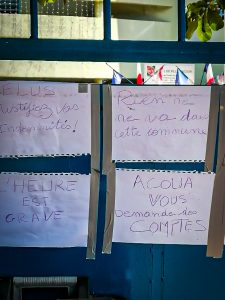 ELUS
Justifiez vos
indemnités!
Rien ne
ne va dans
cette commune
L'HEURE
EST
GRAVE
ACQUA
VOUS
Demande des
COMPTES